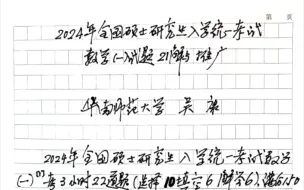 第 页
2024年全国硕士研究生入学统一考试
数学(一)试题 21解与推广
华南师范大学 吴康
2024年全国硕士研究生入学统一考试数学
(一)卷3小时22道题(选择10填空6解答6),满分150